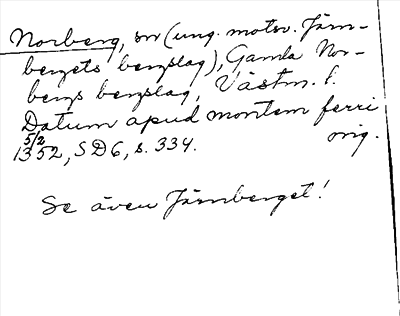 Norberg, sn (ung. motsv. Järn-
bergets bergslag), Gamla Nor-
bergs bergslag, Västm. l.
Datum apud montem ferri
5/2 1352, SD6, s. 334. orig.
Se även Järnberget!